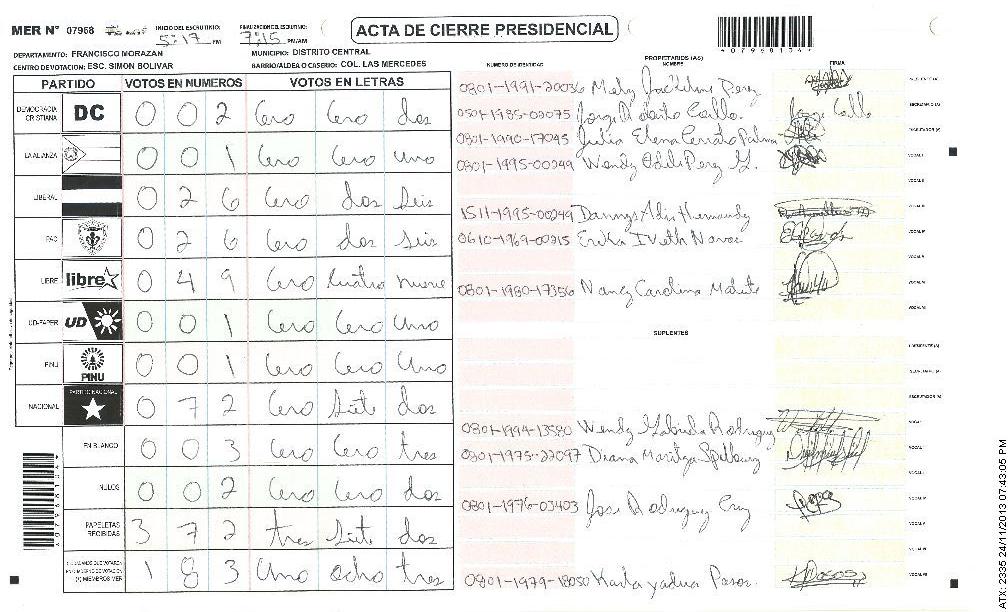 MER N° 07968 INICIO DEL ESCRUTINIO: 5:17 PM FINALIZACION DEL ESCRUTINIO: 7:15 PM/AM ACTA DE CIERRE PRESIDENCIAL
DEPARTAMENTO: FRANCISCO MORAZAN MUNICIPIO: DISTRITO CENTRAL
CENTRO DE VOTACION: ESC. SIMON BOLIVAR BARRIO/ALDEA O CASERIO: COL. LAS MERCEDES
PARTIDO VOTOS EN NUMEROS VOTOS EN LETRAS
DEMOCRACIA CRISTIANA DC 0 0 2 Cero Cero dos
LA ALIANZA 0 0 1 Cero Cero Uno
LIBERAL 0 2 6 Cero dos Seis
PAC 0 2 6 Cero dos Seis
LIBRE libre 0 4 9 Cero Cuatro nueve
UD-FAPER UD 0 0 1 Cero Cero Uno
PINU PINU 0 0 1 Cero Cero Uno
NACIONAL PARTIDO NACIONAL 0 7 2 Cero Siete dos
EN BLANCO 0 0 3 Cero Cero tres
NULOS 0 0 2 Cero Cero dos
PAPELETAS RECIBIDAS 3 7 2 tres Siete dos
CIUDADANOS QUE VOTARON EN CUADERNO DE VOTACION (+) MIEMBROS MER 1 8 3 Uno ocho tres
PROPIETARIOS (AS)
NUMERO DE IDENTIDAD NOMBRE FIRMA
0801-1991-20036 Mely Jackeline Perez
0501-1985-02075 Jorge
0801-1990-17045 Julia Elena Cerrato Palma
0801-1995-00249 Wendy Perez
1511-1995-00249 Dannys Hernandez
0610-1969-00215 Erika Iveth Navas
0801-1980-17356 Nancy Carolina
SUPLENTES
0801-1994-13580 Wendy Gabriela Rodriguez
0801-1975-22097 Diana Maritza
0801-1976-03403 Jose Rodriguez Cruz
0801-1979-18050 Karla yadira Posos
ATX: 2335 24/11/2013 07:43:05 PM